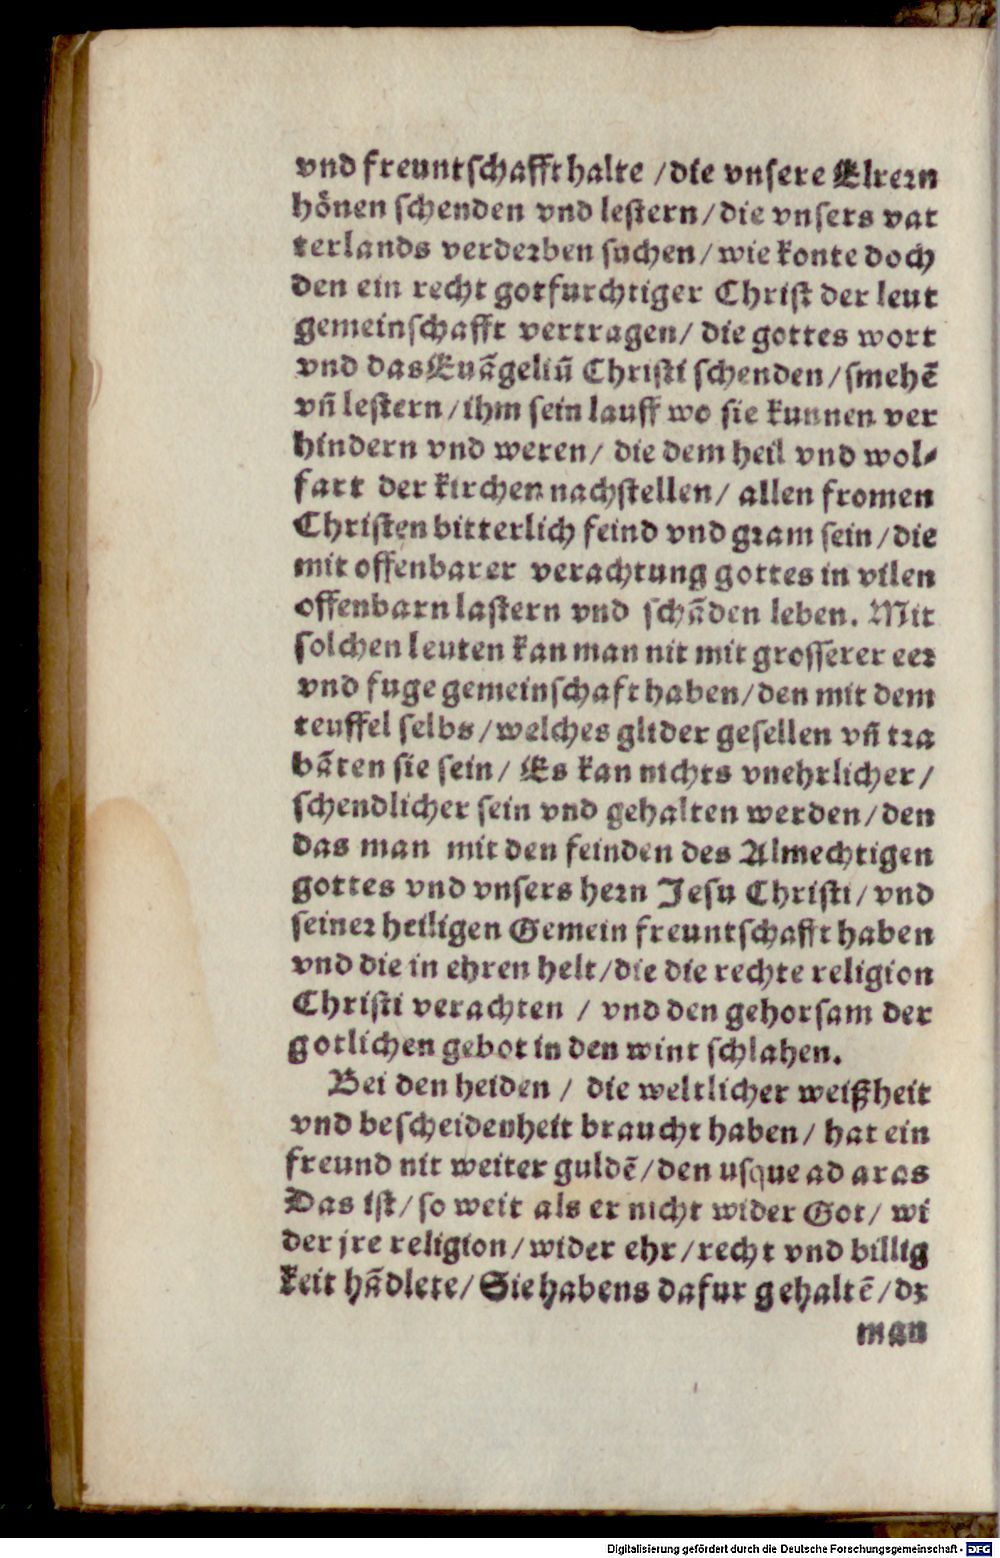 vnd freuntschafft halte /die vnsere Eltern
hönen schenden vnd lestern/die vnsers vat
terlands verderben suchen/wie konte doch
den ein recht gotfurchtiger Christ der leut
gemeinschafft vertragen/ die gottes wort
vnd das Euãgeliũ Christi schenden/smehẽ
vñ lestern/ihm sein lauff wo sie kunnen ver
hindern vnd weren/ die dem heil vnd wol⸗
fart der kirchen nachstellen/ allen fromen
Christen bitterlich feind vnd gram sein/die
mit offenbarer verachtung gottes in vilen
offenbarn lastern vnd schãden leben. Mit
solchen leuten kan man nit mit grosserer eer
vnd fuge gemeinschaft haben/den mit dem
teuffel selbs/welches glider gesellen vñ tra
bãten sie sein/ Es kan nichts vnehrlicher/
schendlicher sein vnd gehalten werden/den
das man mit den feinden des Almechtigen
gottes vnd vnsers hern Jesu Christi/vnd
seiner heiligen Gemein freuntschafft haben
vnd die in ehren helt/die die rechte religion
Christi verachten / vnd den gehorsam der
gotlichen gebot in den wint schlahen.
Bei den heiden / die weltlicher weißheit
vnd bescheidenheit braucht haben/ hat ein
freund nit weiter guldẽ/den usque ad aras
Das ist/so weit als er nicht wider Got/ wi
der jre religion/wider ehr/recht vnd billig
keit hãdlete/ Sie habens dafur gehaltẽ/dz
man
Digitalisierung gefördert durch die Deutsche Forschungsgemeinschaft - DFG